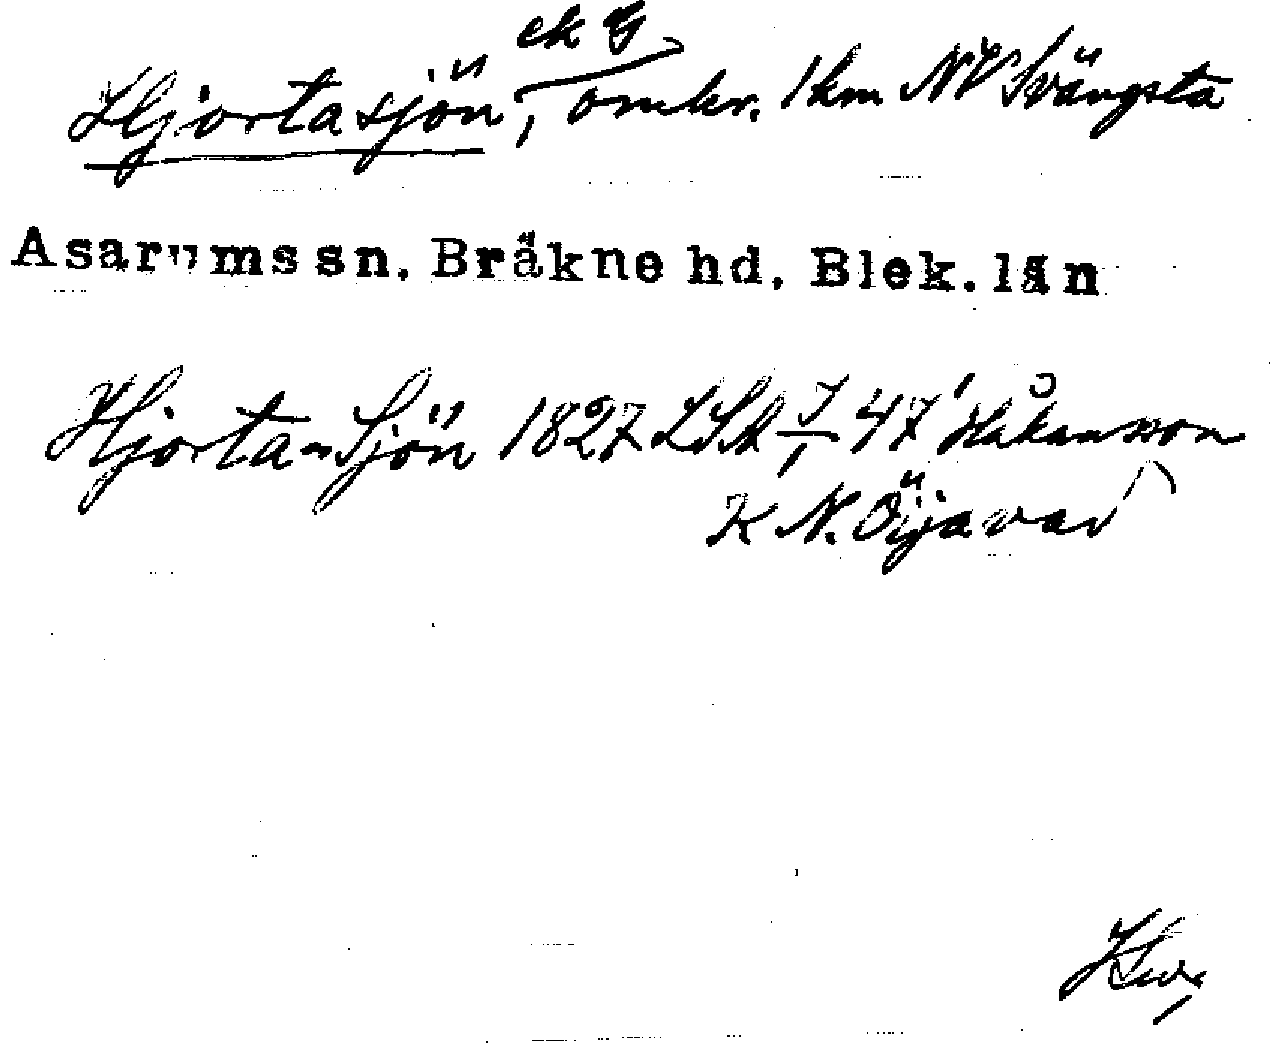 ek G
Hjortasjön, omkr. 1 km NV Svängsta
Asarums sn. Bräkne hd. Blek. län
Hjorta-Sjön 1827 LSA 47 Håkansson
K N. Öijavad